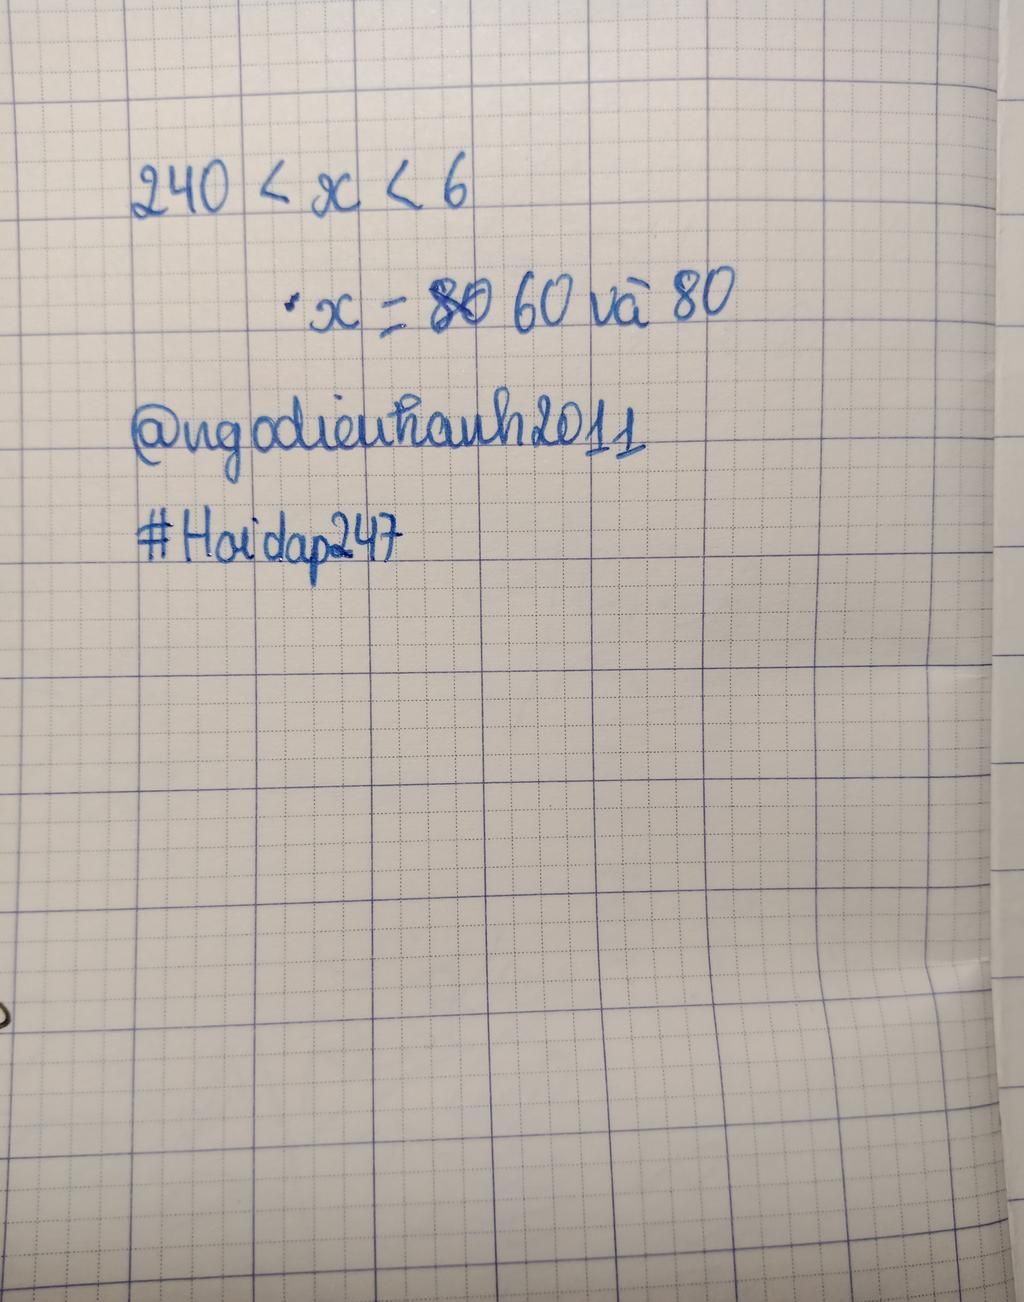 240 < x < 6
x = 60 và 80
@ngodieuthanh2011
#Hoidap247